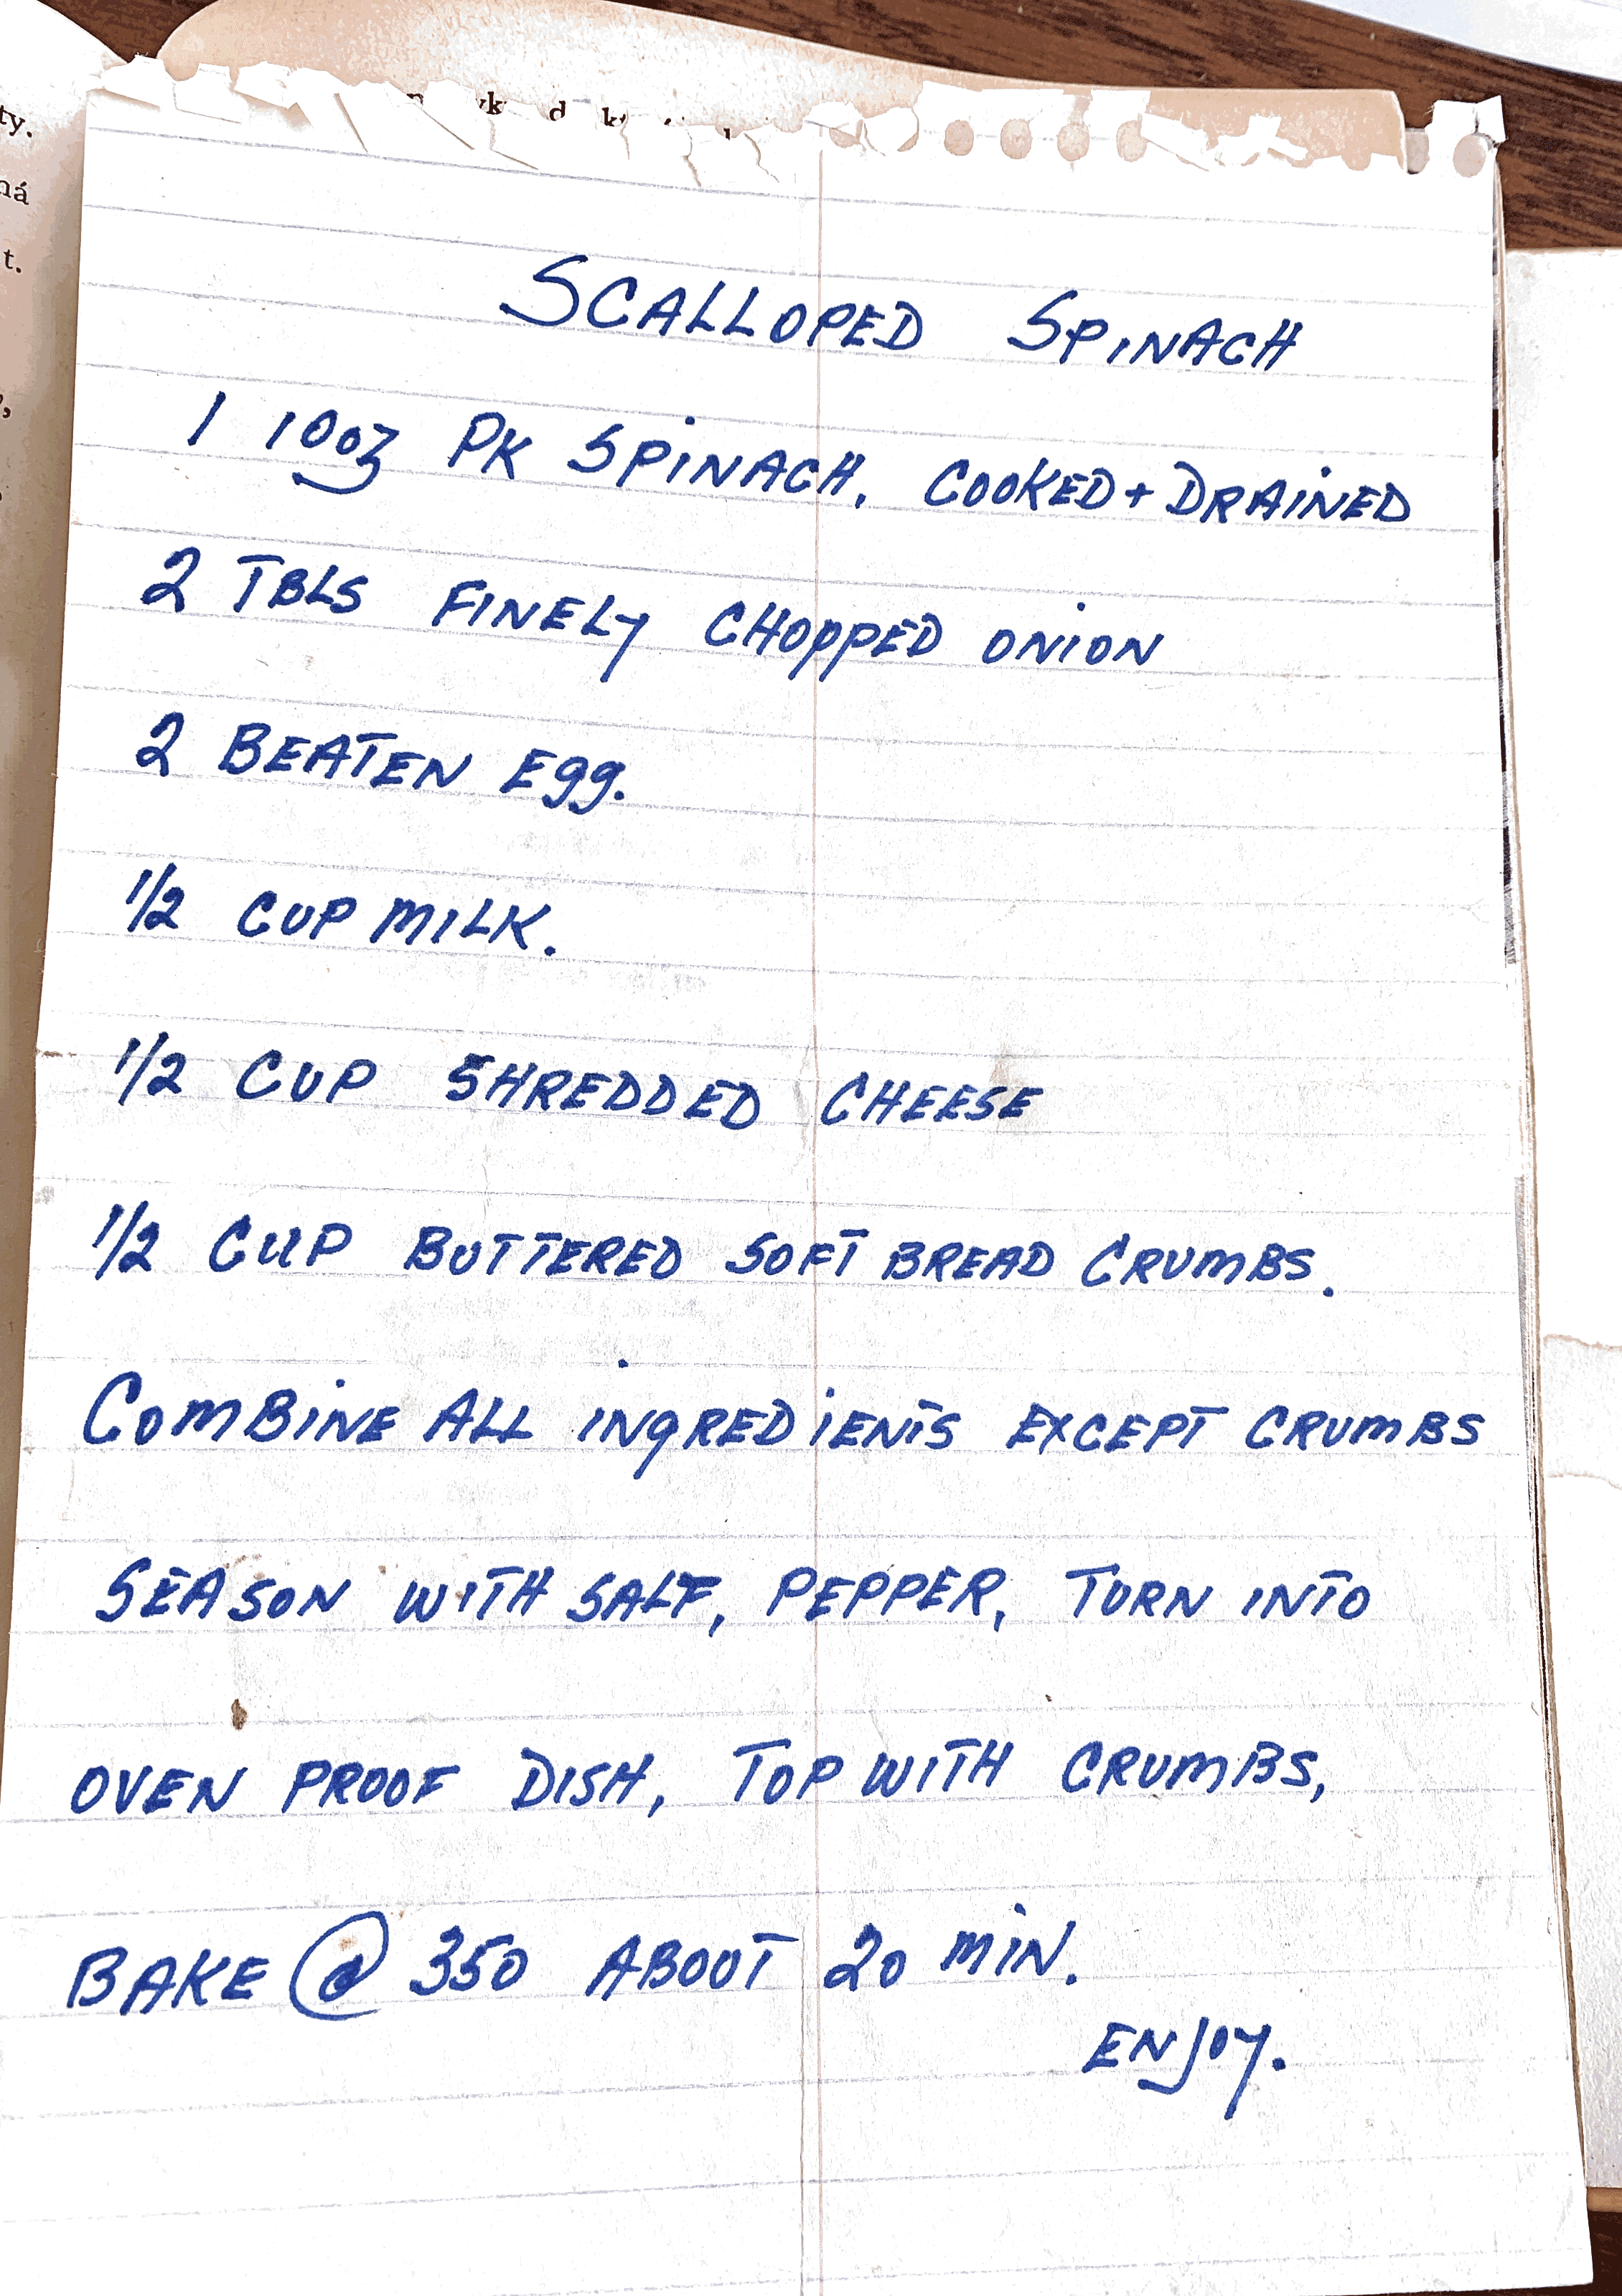 ty.
ná
t.
SCALLOPED SPINACH
1 10oz PK SPiNACH, COOKED + DRAiNED
2 TBLS FINELY CHOPPED ONiON
2 BEATEN Egg.
1/2 CUP MILK.
1/2 CUP SHREDDED CHEESE
1/2 CUP BUTTERED SOFT BREAD CRUMBS.
COMBiNE ALL iNgREDiENTS EXCEPT CRUMBS
SEASON WITH SALT, PEPPER, TURN INTO
OVEN PROOF DISH, TOP WITH CRUMBS,
BAKE @ 350 ABOUT 20 MiN.
ENJOY.